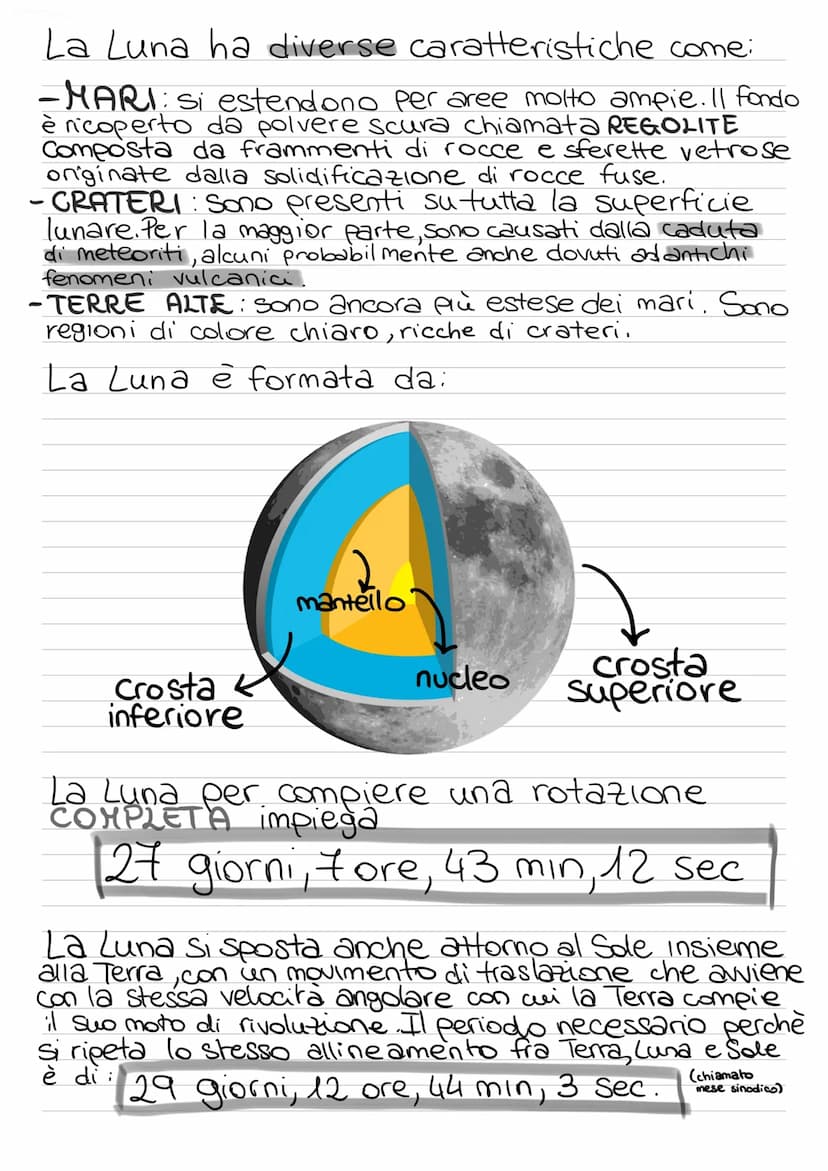 La Luna ha diverse caratteristiche come:
-MARI: si estendono per aree molto ampie. Il fondo
è ricoperto da polvere scura chiamata REGOLITE
composta da frammenti di rocce e sferette vetrose
originate dalla solidificazione di rocce fuse.
-CRATERI: sono presenti su tutta la superficie
lunare. Per la maggior parte, sono causati dalla caduta
di meteoriti, alcuni probabilmente anche dovuti ad antichi
fenomeni vulcanici.
-TERRE ALTE: sono ancora più estese dei mari. Sono
regioni di colore chiaro, ricche di crateri.
La Luna è formata da:
mantello
nucleo
crosta
superiore
crosta
inferiore
La Luna per compiere una rotazione
COMPLETA impiega
27 giorni, 7 ore, 43 min, 12 sec
La Luna si sposta anche attorno al Sole insieme
alla Terra, con un movimento di traslazione che avviene
con la stessa velocità angolare con cui la Terra compie
il suo moto di rivoluzione. Il periodo necessario perchè
si ripeta lo stesso allineamento fra Terra, Luna e Sole
è di: 29 giorni, 12 ore, 44 min, 3 sec. (chiamato
mese sinodico)